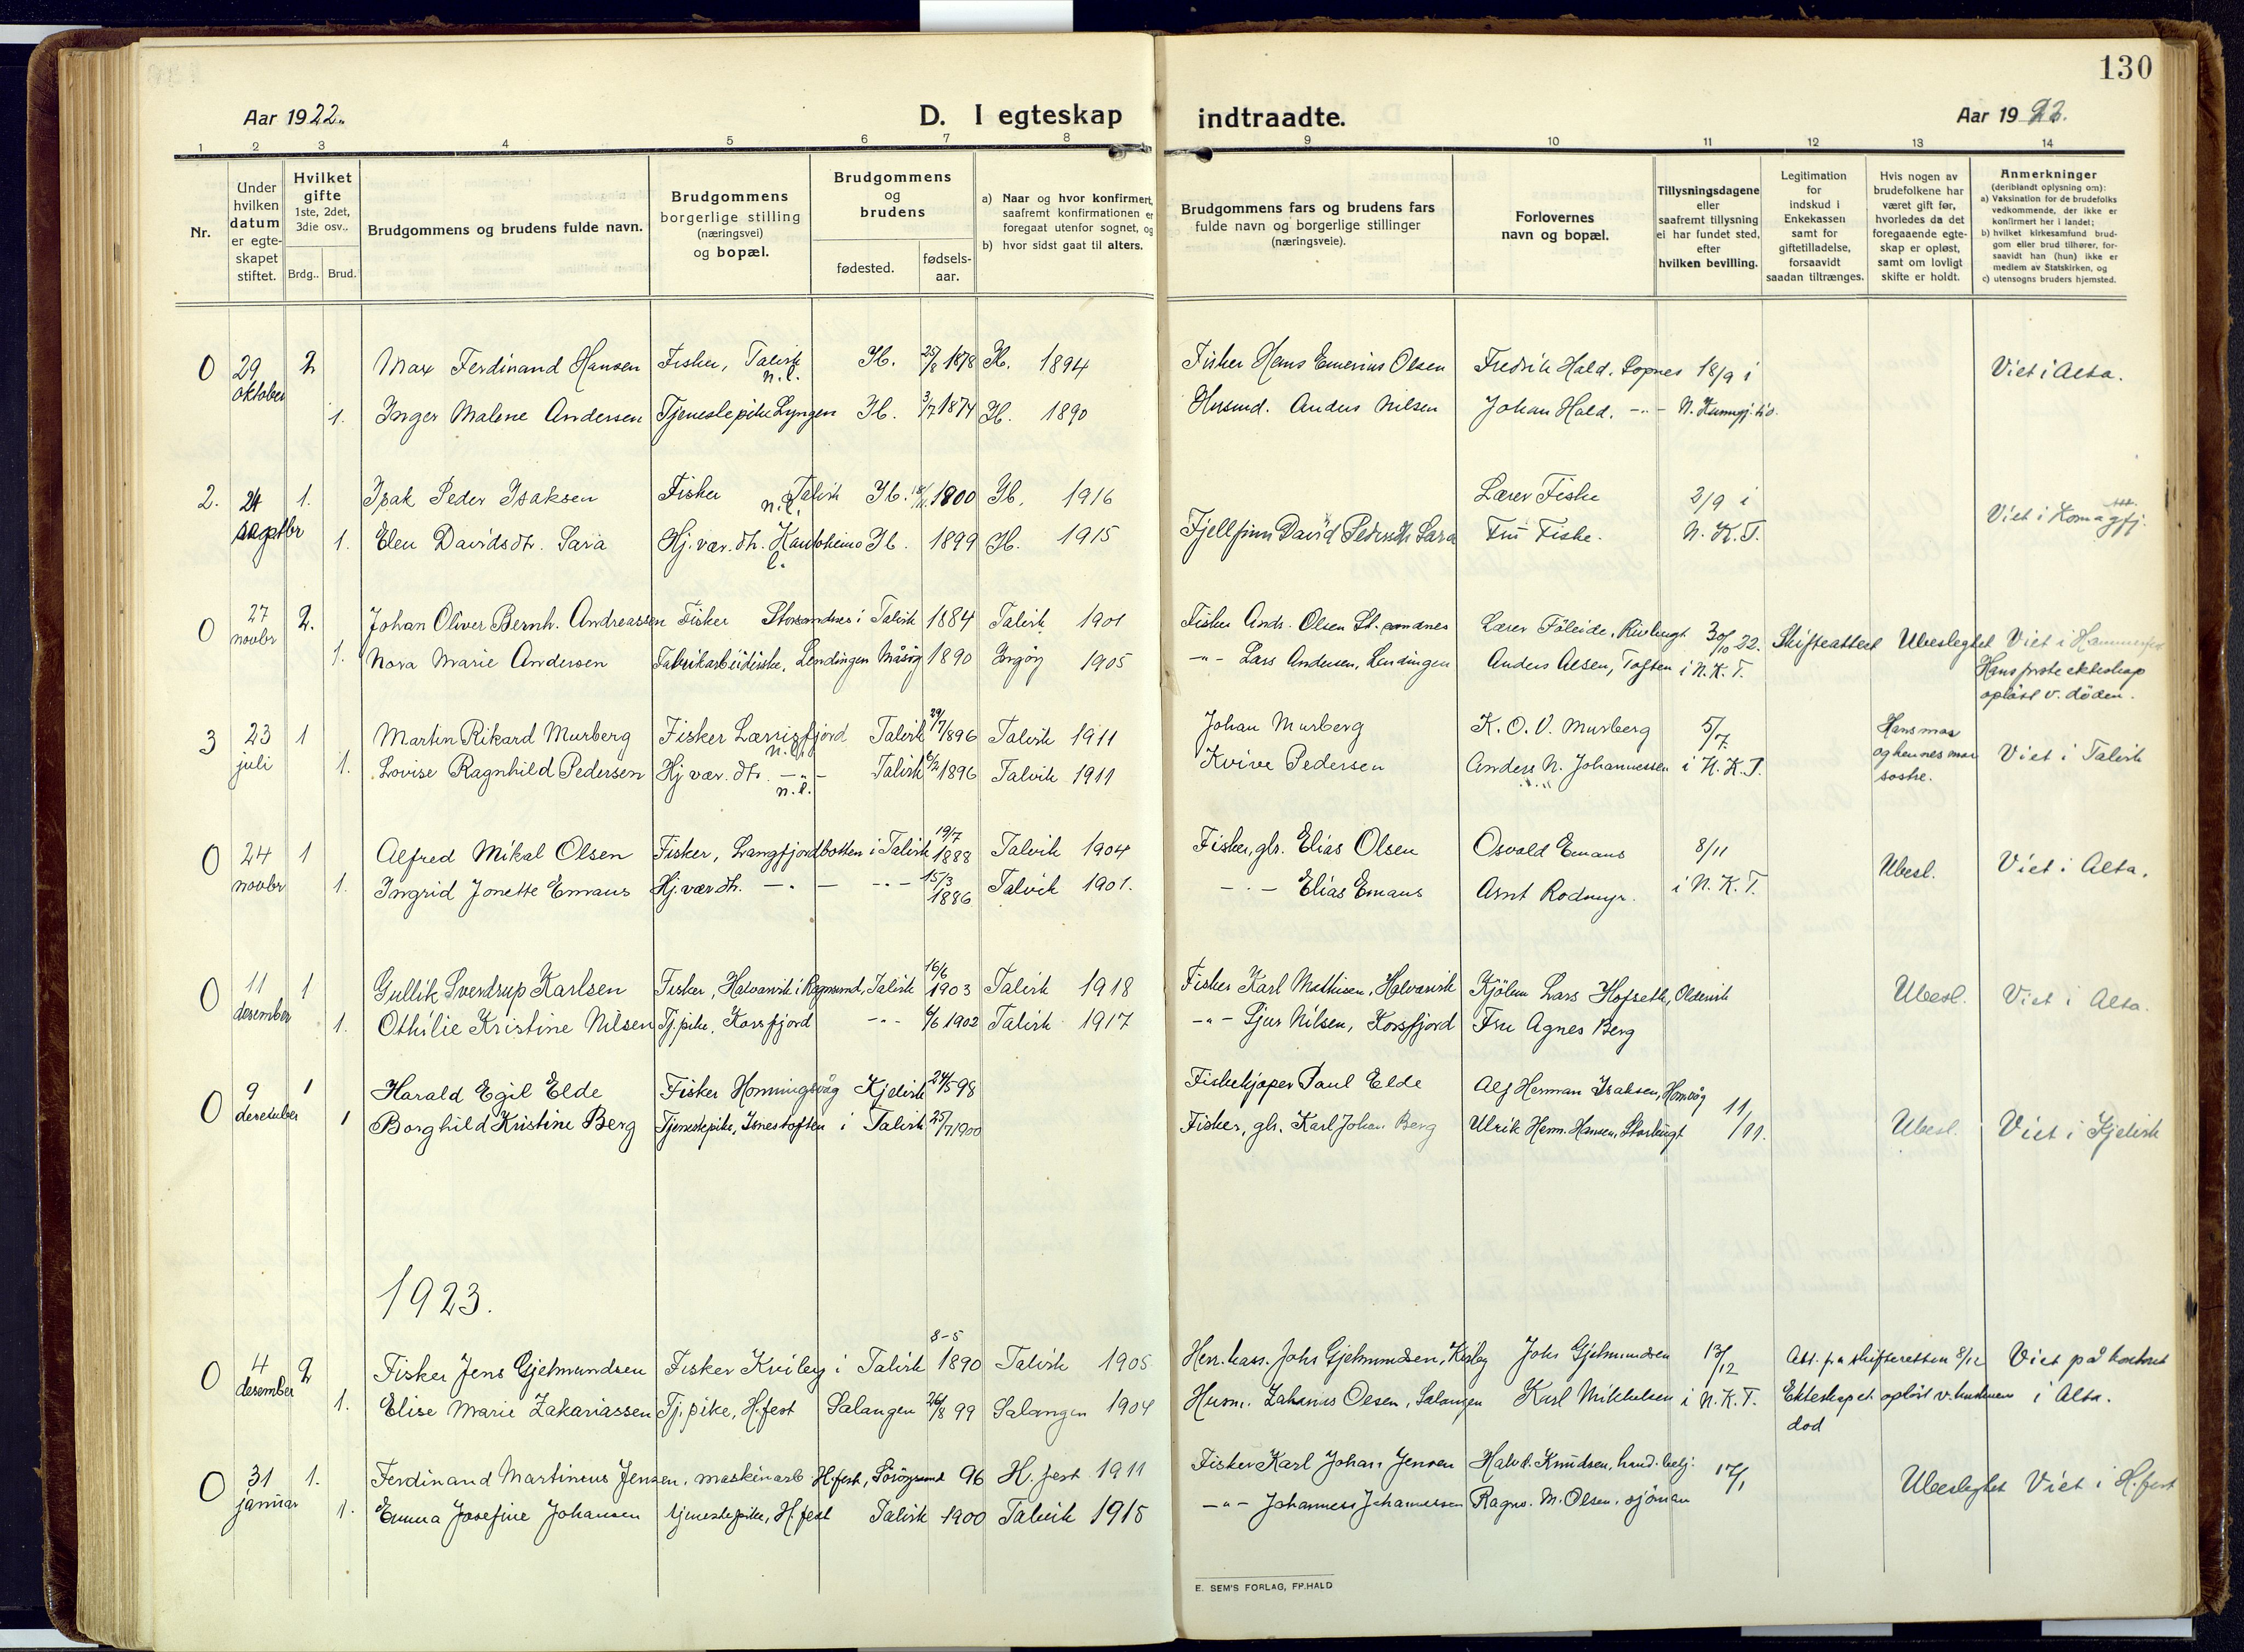 130
Aar 1922. D. I egteskap indtraadte. Aar 19
1 2 3 4 5 6 7 8 9 10 11 12 13 14
Nr.
Under hvilken datum er egte-skapet stiftet.
Hvilket gifte 1ste, 2det, 3die osv..
Brdg.. Brud.
Brudgommens og brudens fulde navn.
Brudgommens borgerlige stilling (næringsvei) og bopæl.
Brudgommens og brudens
fødested. fødsels-aar.
a) Naar og hvor konfirmert, saafremt konfirmationen er foregaat utenfor sognet, og
b) hvor sidst gaat til alters.
Brudgommens fars og brudens fars fulde navn og borgerlige stillinger (næringsveie).
Forlovernes navn og bopæl.
Tillysningsdagene eller saafremt tillysning ei har fundet sted, efter hvilken bevilling.
Legitimation for indskud i Enkekassen samt for giftetilladelse, forsaavidt saadan tiltrænges.
Hvis nogen av brudefolkene har været gift før, hvorledes da det foregaaende egte-skap er opløst, samt om lovligt skifte er holdt.
Anmerkninger (deriblandt oplysning om):
a) Vaksination for de brudefolks vedkommende, der ikke er konfirmert her i landet;
b) hvilket kirkesamfund brud-gom eller brud tilhører, for-saavidt han (hun) ikke er medlem av Statskirken, og
c) utensogns bruders hjemsted.
0 29 oktober 2 Max Ferdinand Hansen Fisker, Talvik n.l. 25/8 1878 1894 Fisker Hans Emerius Olsen Fredrik Hald. Sopnes 18/9 i Viet i Alta.
1. Inger Malene Andersen Tjenestepike Lyngen 3/7 1874 1890 Husmd. Anders Nilsen Johan Hald. -"- N.
2. 24 septbr 1. Isak Peder Isaksen Fisker Talvik n.l. 1800 1916 Lærer Fiske 2/9 i Viet i Komagfj.
1. Elen Davidsdtr. Sara Hj. vær. dtr. Kautokeino l. 1899 1915 Fjellfinn David Sara Fru Fiske. N. K. T.
0 27 novbr 2. Johan Oliver Bernh. Andreassen Fisker Storsandnes i Talvik 1884 Talvik 1901 Fisker Andr. Olsen St. sandnes Lærer Föleide, 30/10 22. Skifteattest Ubeslegtet Viet i
1. Nora Marie Andersen Fabrikarbeiderske, Lendingen Måsöy 1890 Ingöy 1905 -"- Lars Andersen, Lendingen Anders Olsen, Toften i N. K. T. Hans første ekteskap
opløst v. döden.
3 23 juli 1 Martin Rikard Murberg Fisker n.l. Talvik 29/7 1896 Talvik 1911 Johan Murberg K. O. V. Murberg 5/7. Hans mor og hennes mor søstre. Viet i Talvik
1. Lovise Ragnhild Pedersen Hj vær. dtr. -"- n.l. Talvik 1896 Talvik 1911 Kvive Pedersen Anders N. Johannessen i N. K. T.
0 24 novbr 1 Alfred Mikal Olsen Fisker, Langfjordbotten i Talvik 19/7 1888 Talvik 1904 Fisker, gbr. Elias Olsen Osvald Emaus 8/11 Ubesl. Viet i Alta.
1. Ingrid Jonette Emaus Hj. vær dtr. -"- -"- 15/3 1886 Talvik 1901. -"- Elias Emaus Arnt Rodmyr. i N. K. T.
0 11 desember 1 Gullik Sverdrup Karlsen Fisker, Halvarvik i Rognsund, Talvik 16/6 1903 Talvik 1918 Fisker Karl Mathisen, Halvarvik Lars Hofseth, Oldervik Ubesl. Viet i Alta.
1. Othilie Kristine Nilsen Tj. pike, Korsfjord -"- 1902 Talvik 1917 -"- Gjur Nilsen, Korsfjord Fru Agnes Berg
0 9 desember 1 Harald Egil Elde Fisker Honningsvåg Kjelvik 24/5 98 Fiskekjøper Paul Elde Alf Herman Isaksen, Honvåg 11/11. Ubesl. Viet i Kjelvik
1 Borghild Kristine Berg Tjenestepike, Isnestoften i Talvik 25/7 1900 Fisker, gbr. Karl Johan Berg Ulrik Herm. Hansen,
1923.
0 4 desember 2 Fisker Jens Gjetmundsen Fisker Kviby i Talvik 8-5 1890 Talvik 1905 Herr. kass. Johs Gjetmundsen, Kviby Johs Gjetmundsen 13/12 Att. fra skifteretten 8/12 Viet på kontoret
1. Elise Marie Zakariassen Tj. pike, H.fest Salangen 26/8 99 Salangen 1904 Husm. Zakarias Olsen, Salangen Karl Mikkelsen i N. K. T. Ekteskapet opløst v. hustruens i Alta.
død
0 31 januar 1. Ferdinand Martineus Jensen, maskinarb H.fest, Sörøysund 96 H.fest 1911 Fisker Karl Johan Jensen Halvd. Knudsen, hand. betj. 17/1 Ubeslegtet Viet i H.fest
1. Emma Josefine Johansen tjenestepike, H.fest Talvik 1900 Talvik 1915 -"- Johannes Johannessen Ragnv. M. Olsen, sjöman
E. SEM'S FORLAG, FR.HALD